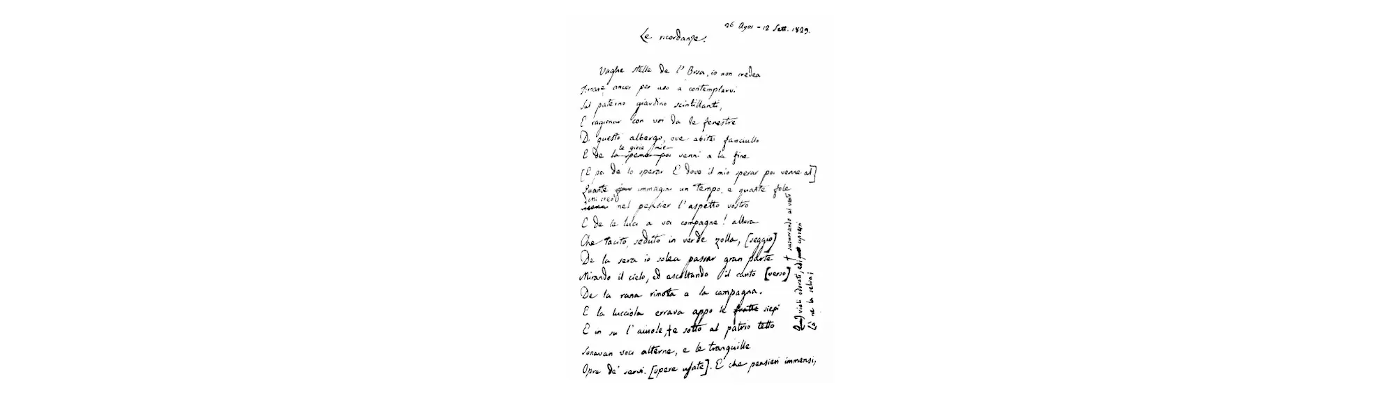 26 Agos - 12 Sett. 1829.
Le ricordanze.
Vaghe stelle de l'Orsa, io non credea
Tornare ancor per uso a contemplarvi
Sul paterno giardino scintillanti,
E ragionar con voi da le fenestre
Di questo albergo, ove abitai fanciullo
le gioie mie
E de la speme poi venni a la fine
[E poi de lo sperar E dove il mio sperar poi venne al]
Quante immagini un tempo, e quante fole
nel pensier l'aspetto vostro
E de le luci a voi compagne! allora
Che tacito, seduto in verde zolla, [seggio]
De la sera io solea passar gran parte
Mirando il cielo, ed ascoltando il canto [verso]
De la rana rimota a la campagna.
E la lucciola errava appo le siepi
E in su l'aiuole,† e sotto al patrio tetto
Sonavan voci alterne, e le tranquille
Opre de' servi. [opere usate]. E che pensieri immensi,
† susurrando al vento
viali odorati, ed i cipressi
Là ne la selva;